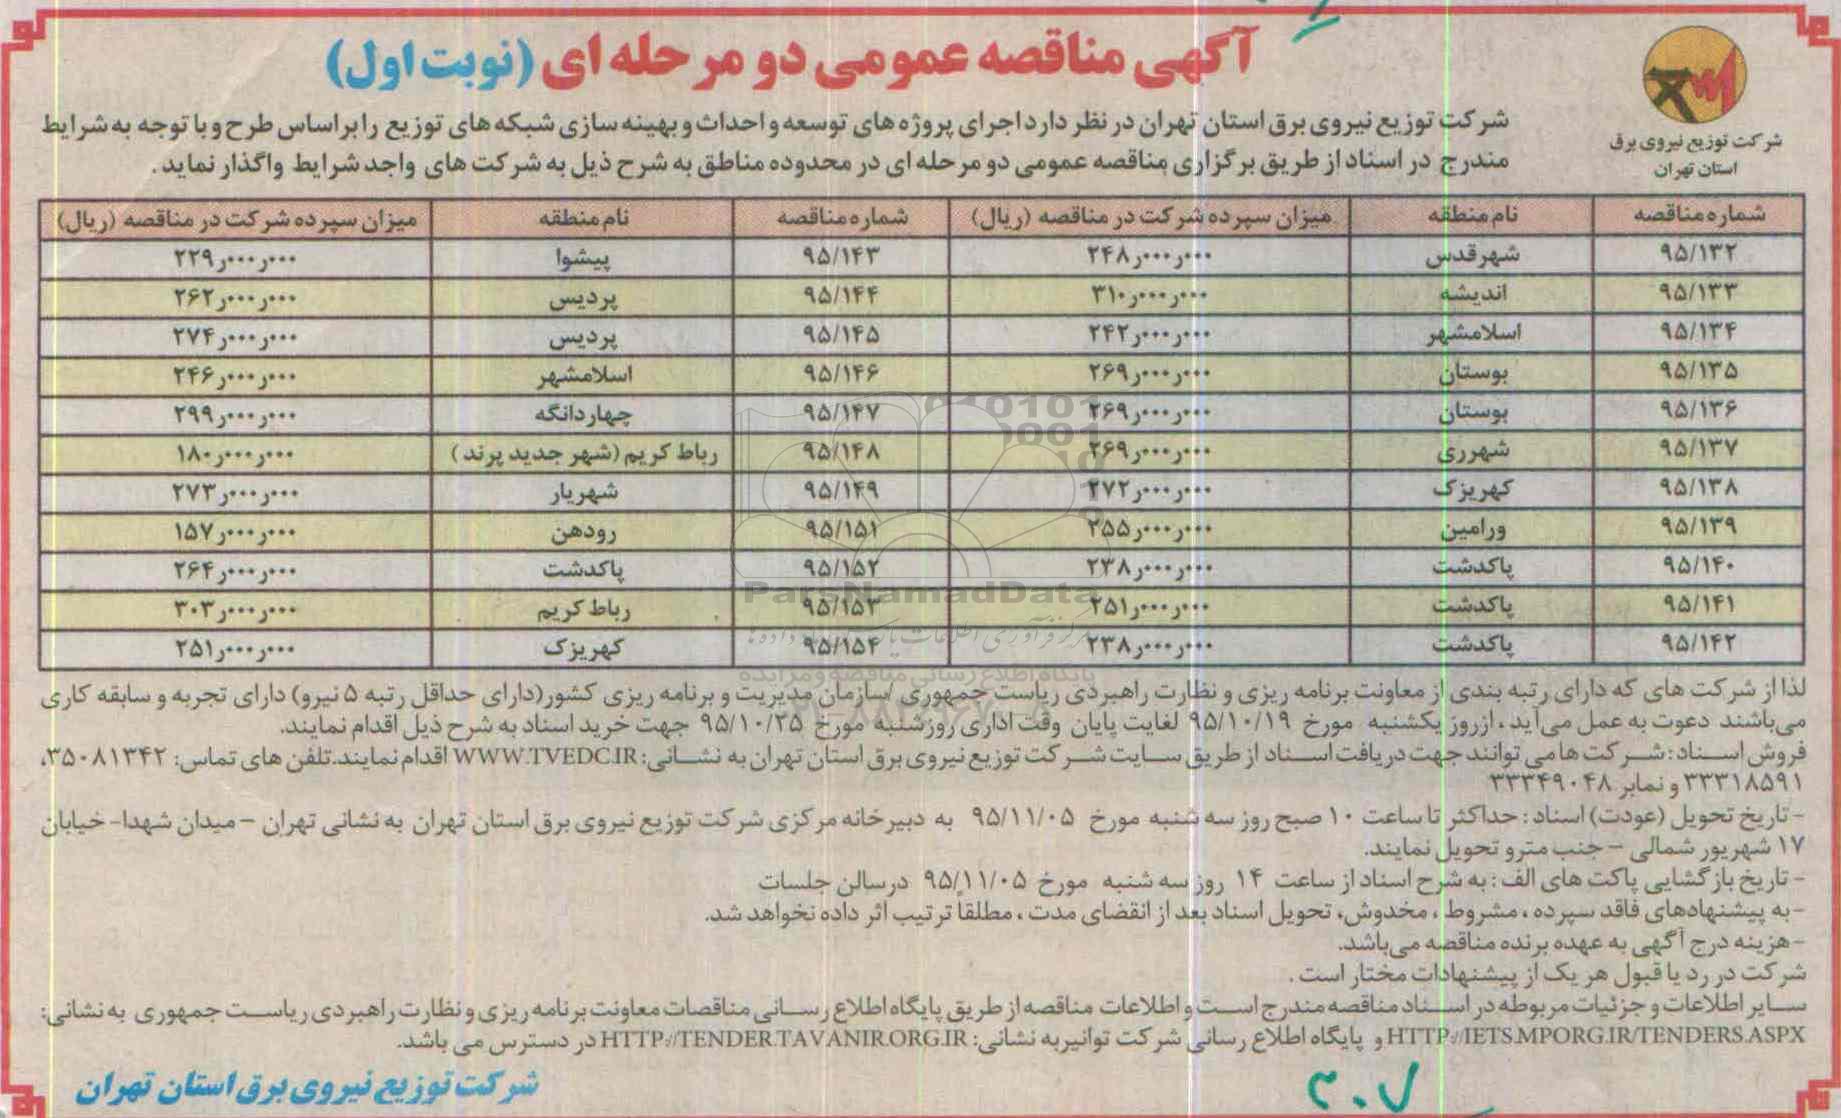 آگهی مناقصه عمومی دو مرحله ای (نوبت اول)
شرکت توزیع نیروی برق
استان تهران
شرکت توزیع نیروی برق استان تهران در نظر دارد اجرای پروژه های توسعه و احداث و بهینه سازی شبکه های توزیع را براساس طرح و با توجه به شرایط
مندرج در اسناد از طریق برگزاری مناقصه عمومی دو مرحله ای در محدوده مناطق به شرح ذیل به شرکت های واجد شرایط واگذار نماید.
شماره مناقصه نام منطقه میزان سپرده شرکت در مناقصه (ریال) شماره مناقصه نام منطقه میزان سپرده شرکت در مناقصه (ریال)
۹۵/۱۳۲ شهرقدس ۲۴۸ر۰۰۰ر۰۰۰ ۹۵/۱۴۳ پیشوا ۲۲۹ر۰۰۰ر۰۰۰
۹۵/۱۳۳ اندیشه ۳۱۰ر۰۰۰ر۰۰۰ ۹۵/۱۴۴ پردیس ۲۶۲ر۰۰۰ر۰۰۰
۹۵/۱۳۴ اسلامشهر ۲۴۲ر۰۰۰ر۰۰۰ ۹۵/۱۴۵ پردیس ۲۷۴ر۰۰۰ر۰۰۰
۹۵/۱۳۵ بوستان ۲۶۹ر۰۰۰ر۰۰۰ ۹۵/۱۴۶ اسلامشهر ۲۴۶ر۰۰۰ر۰۰۰
۹۵/۱۳۶ بوستان ۲۶۹ر۰۰۰ر۰۰۰ ۹۵/۱۴۷ چهاردانگه ۲۹۹ر۰۰۰ر۰۰۰
۹۵/۱۳۷ شهرری ۲۶۹ر۰۰۰ر۰۰۰ ۹۵/۱۴۸ رباط کریم (شهر جدید پرند) ۱۸۰ر۰۰۰ر۰۰۰
۹۵/۱۳۸ کهریزک ۲۷۲ر۰۰۰ر۰۰۰ ۹۵/۱۴۹ شهریار ۲۷۳ر۰۰۰ر۰۰۰
۹۵/۱۳۹ ورامین ۲۵۵ر۰۰۰ر۰۰۰ ۹۵/۱۵۱ رودهن ۱۵۷ر۰۰۰ر۰۰۰
۹۵/۱۴۰ پاکدشت ۲۳۸ر۰۰۰ر۰۰۰ ۹۵/۱۵۲ پاکدشت ۲۶۴ر۰۰۰ر۰۰۰
۹۵/۱۴۱ پاکدشت ۲۵۱ر۰۰۰ر۰۰۰ ۹۵/۱۵۳ رباط کریم ۳۰۳ر۰۰۰ر۰۰۰
۹۵/۱۴۲ پاکدشت ۲۳۸ر۰۰۰ر۰۰۰ ۹۵/۱۵۴ کهریزک ۲۵۱ر۰۰۰ر۰۰۰
ParsNamadData
پایگاه اطلاع رسانی مناقصه و مزایده
لذا از شرکت های که دارای رتبه بندی از معاونت برنامه ریزی و نظارت راهبردی ریاست جمهوری /سازمان مدیریت و برنامه ریزی کشور(دارای حداقل رتبه ۵ نیرو) دارای تجربه و سابقه کاری
می‌باشند دعوت به عمل می‌آید، ازروز یکشنبه مورخ ۹۵/۱۰/۱۹ لغایت پایان وقت اداری روزشنبه مورخ ۹۵/۱۰/۲۵ جهت خرید اسناد به شرح ذیل اقدام نمایند.
فروش اسناد: شرکت ها می توانند جهت دریافت اسناد از طریق سایت شرکت توزیع نیروی برق استان تهران به نشانی: WWW.TVEDC.IR اقدام نمایند.تلفن های تماس: ۳۵۰۸۱۳۴۲،
۳۳۳۱۸۵۹۱ و نمابر ۳۳۳۴۹۰۴۸
-تاریخ تحویل (عودت) اسناد: حداکثر تا ساعت ۱۰ صبح روز سه شنبه مورخ ۹۵/۱۱/۰۵ به دبیرخانه مرکزی شرکت توزیع نیروی برق استان تهران به نشانی تهران – میدان شهدا- خیابان
۱۷ شهریور شمالی – جنب مترو تحویل نمایند.
-تاریخ بازگشایی پاکت های الف: به شرح اسناد از ساعت ۱۴ روز سه شنبه مورخ ۹۵/۱۱/۰۵ درسالن جلسات
-به پیشنهادهای فاقد سپرده، مشروط، مخدوش، تحویل اسناد بعد از انقضای مدت، مطلقاً ترتیب اثر داده نخواهد شد.
-هزینه درج آگهی به عهده برنده مناقصه می‌باشد.
شرکت در رد یا قبول هر یک از پیشنهادات مختار است.
سایر اطلاعات و جزئیات مربوطه در اسناد مناقصه مندرج است و اطلاعات مناقصه از طریق پایگاه اطلاع رسانی مناقصات معاونت برنامه ریزی و نظارت راهبردی ریاست جمهوری به نشانی:
HTTP://IETS.MPORG.IR/TENDERS.ASPX و پایگاه اطلاع رسانی شرکت توانیر به نشانی: HTTP://TENDER.TAVANIR.ORG.IR در دسترس می باشد.
شرکت توزیع نیروی برق استان تهران